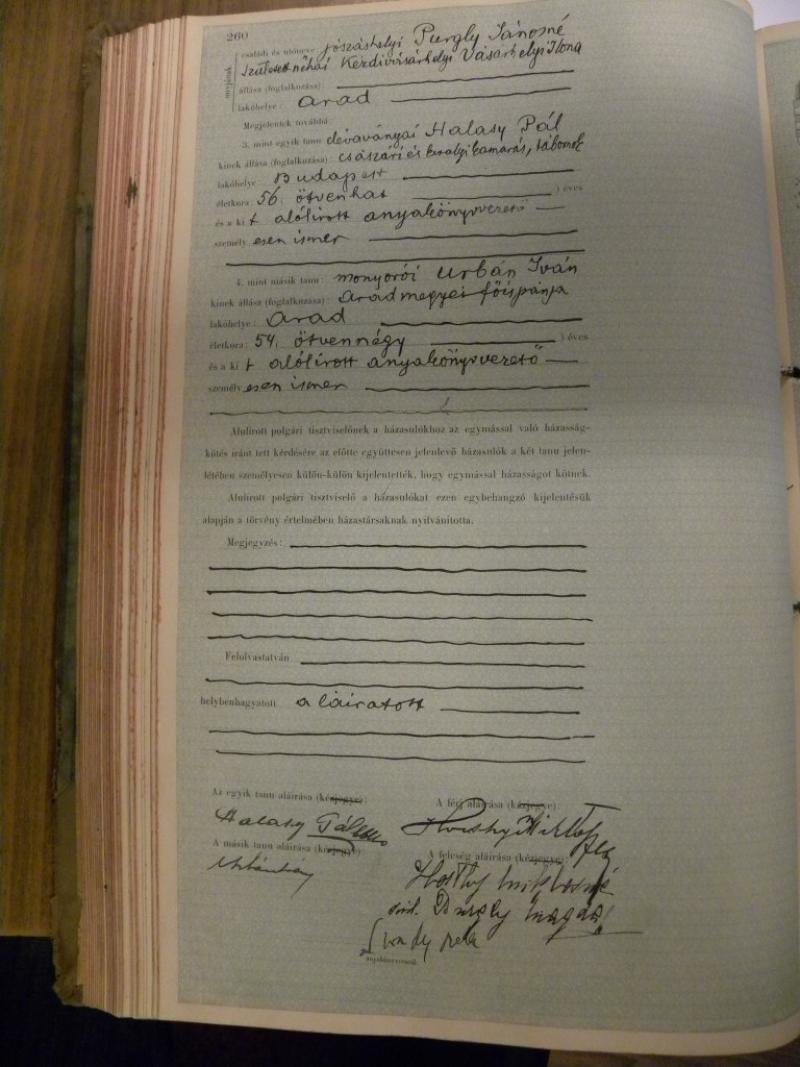 260
családi és utóneve: jószáshelyi Purgly Jánosné
anyjának
született néhai Kézdivásárhelyi Vásárhelyi Ilona
állása (foglalkozása):
lakóhelye: Arad
Megjelentek továbbá:
3. mint egyik tanu dévaványai Halasy Pál
kinek állása (foglalkozása): császári és királyi kamarás, tábornok
lakóhelye Budapest
életkora: 56. ötvenhat ) éves
és a ki t alólirott anyakönyvvezető
személyesen ismer
4. mint másik tanu: monyorói Urbán Iván
kinek állása (foglalkozása): Aradmegye főispánja
lakóhelye: Arad
életkora: 54. ötvennégy ) éves
és a ki t alólirott anyakönyvvezető
személyesen ismer
Alulirott polgári tisztviselőnek a házasulókhoz az egymással való házasság-
kötés iránt tett kérdésére az előtte együttesen jelenlevő házasulók a két tanu jelen-
létében személyesen külön-külön kijelentették, hogy egymással házasságot kötnek.
Alulirott polgári tisztviselő a házasulókat ezen egybehangzó kijelentésük
alapján a törvény értelmében házastársaknak nyilvánította.
Megjegyzés:
Felolvastatván
helybenhagyatott aláiratott
Az egyik tanu aláírása (kézjegye):
A férj aláírása (kézjegye):
Halasy Pál
Horthy Miklós
A másik tanu aláírása (kézjegye):
A feleség aláírása (kézjegye):
Urbán Iván
Horthy Miklósné
szül. Purgly Magda
anyakönyvvezető